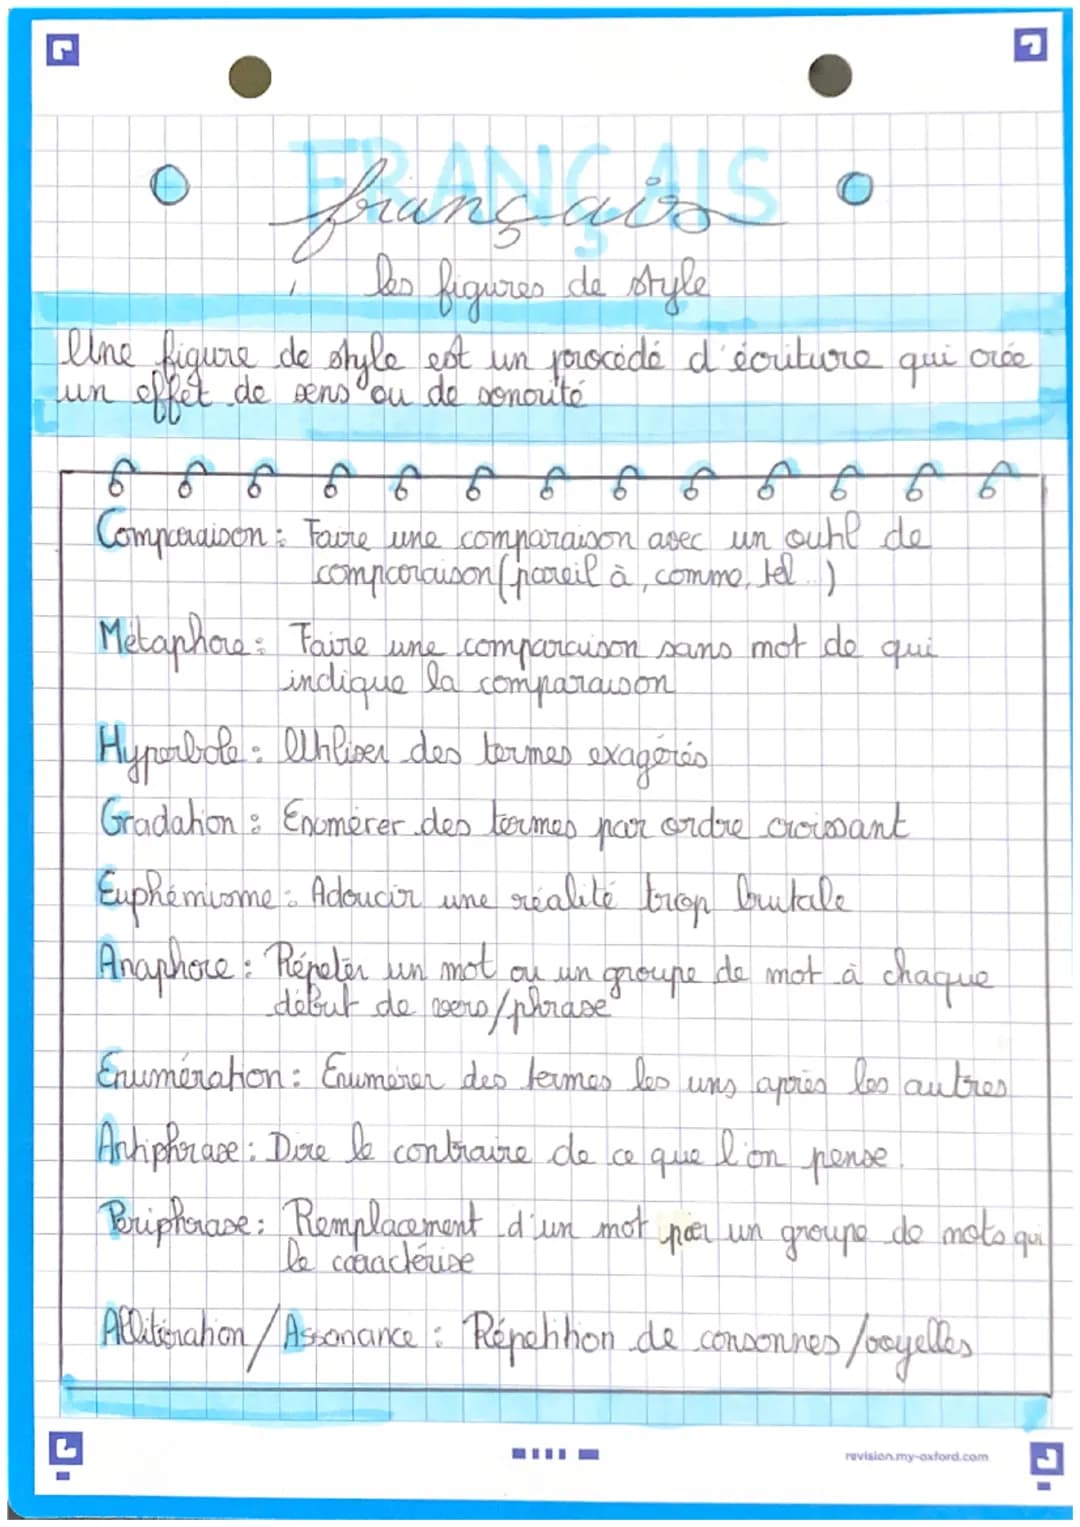 FRANÇAIS
français
les figures de style
Une figure de style est un procédé d'écriture qui crée
un effet de sens ou de sonorité
Comparaison : Faire une comparaison avec un outil de
comparaison (pareil à, comme, tel...)
Métaphore : Faire une comparaison sans mot de qui
indique la comparaison
Hyperbole : Utiliser des termes exagérés
Gradation : Enumérer des termes par ordre croissant
Euphémisme : Adoucir une réalité trop brutale
Anaphore : Répeter un mot ou un groupe de mot à chaque
début de vers/phrase
Enumération : Enumérer des termes les uns après les autres
Antiphrase : Dire le contraire de ce que l'on pense.
Periphrase : Remplacement d'un mot par un groupe de mots qui
le caractérise
Allitération / Assonance : Répetition de consonnes / voyelles
revision.my-oxford.com